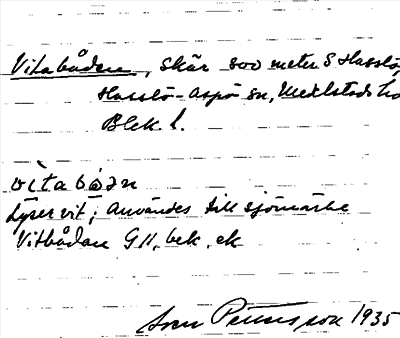 Vitabåden, skär 500 meter S Hasslö,
Hasslö-Aspö sn, Medelstads
Blek. l.
vìtabòdn
Lyser vit; Användes till sjömärke
Vitbådan G11, bek, ek
Sven 1935